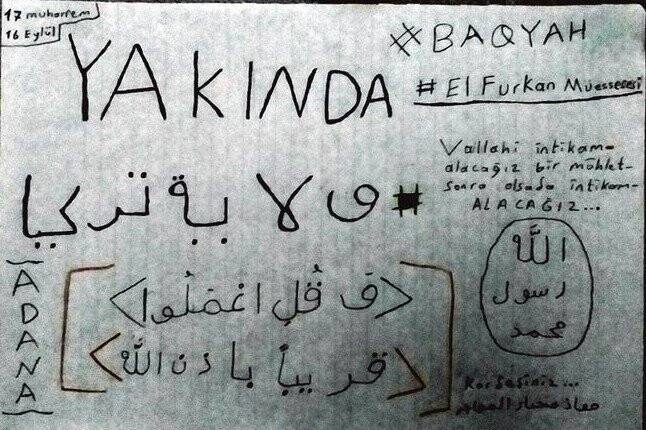 17 muharrem
16 Eylül
YAKINDA
#BAQYAH
# El Furkan Müessesesi
Vallahi intikam-
alacağız bir mühlet-
sonra olsada intikam-
ALACAĞIZ...
# ولاية تركيا
ADANA
<فَ قُلِ اعْمَلُوا>
<قريباً باذن الله>
الله
رسول
محمد